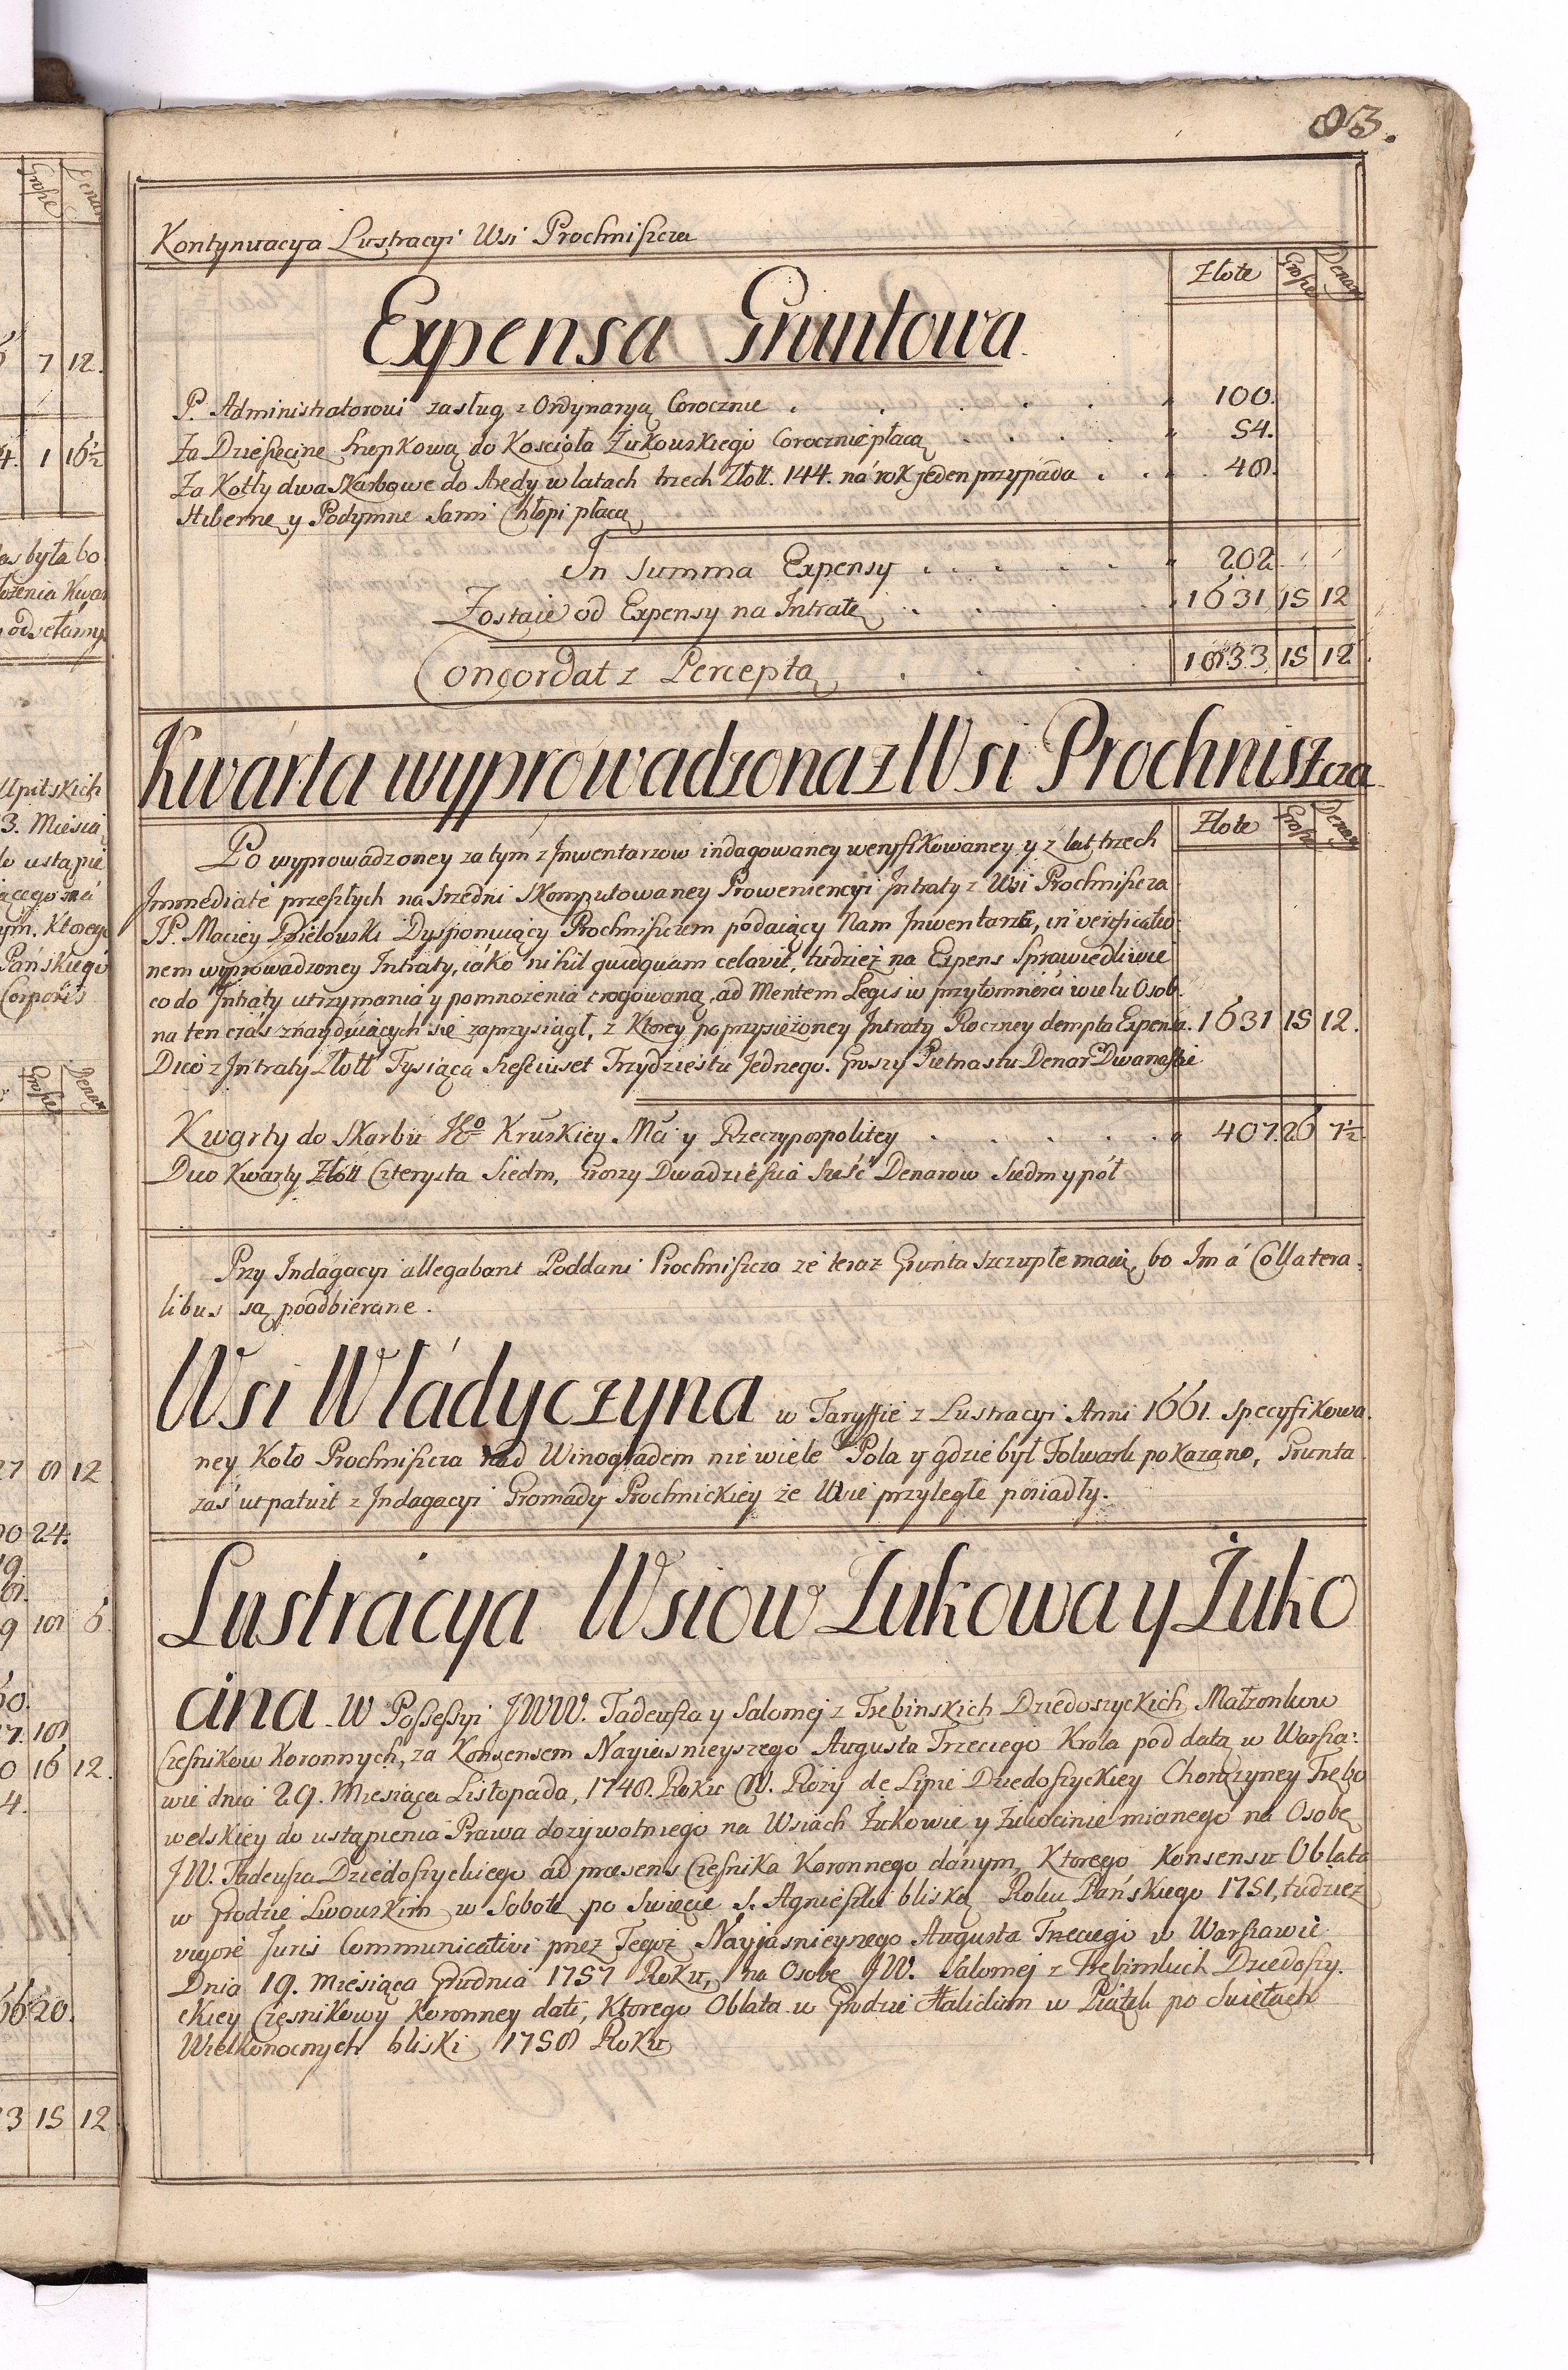 83.
Kontynuacya Lustracyi Wsi Prochniszcza
Złote Grosze Denar
Expensa Gruntowa
P. Administratorowi zasług z Ordynaryą Corocznie . . . . 100.
Za Dziesięcine Snopkową do Kościoła Żukowskiego Corocznie płacą . . . 54.
Za Kotły dwa Skarbowe do Aredy w latach trzech Złott. 144. na rok jeden przypada . . 48.
Hibernę y Podymne Sami Chłopi płacą
In Summa Expensy . . . . . 202
Zostaie od Expensy na Intratę . . . . 1631 15 12
Concordat z Perceptą . . . 1833 15 12
Kwarta wyprowadzona z Wsi Prochniszcza
Złote Grosze Denar
Po wyprowadzoney za tym z Inwentarzow indagowaney weryfikowaney y z lat trzech
Immediate przeszłych na Srzedni Skomputowaney Proweniencyi Intraty z Wsi Prochniszcza
JP. Maciey Dzielowski Dysponuiący Prochniszczem podaiący Nam Inwentarz, in verificatio-
nem wyprowadzoney Intraty, iako nihil quidquam celavit, tudziez na Expens Sprawiedliwie
co do Intraty utrzymania y pomnozenia erogowaną, ad Mentem Legis w przytomności wielu Osob
na ten czas znayduiących się zaprzysiągł, z Ktorey poprzysiężoney Intraty Roczney dempta Expensa. 1631 15 12.
Dico z Intraty Złott Tysiąca Sześciuset Trzydziestu Jednego. Groszy Pietnastu Denar Dwanaście
Kwarty do Skarbu Jgo Kruskiey Mci y Rzeczypospolitey . . . . . 407. 26 7½.
Dico Kwarty Złott Czterysta Siedm, Groszy Dwadzieścia Sześć Denarow Siedm y pół
Przy Indagacyi allegabant Poddani Prochniszcza ze teraz Grunta szczupłe maią, bo Im á Collatera-
libus są poodbierane.
Wsi Władyczyna w Taryffie z Lustracyi Anni 1661. specyfikowa-
ney Koło Prochniszcza nad Winogradem nie wiele Pola y gdzie był Folwark pokazano, Grunta
zas ut patuit z Indagacyi Gromady Prochnickiey ze Wsie przyległe posiadły.
Lustracya Wsiow Żukowa y Żuko
cina w Possessyi JWW. Tadeusza y Salomej z Trębinskich Dziedoszyckich Małzonkow
Czesnikow Koronnych, za Konsensem Nayiasnieyszego Augusta Trzeciego Krola pod datą w Warsza-
wie dnia 29. Miesiąca Listopada, 1748. Roku W. Rozy de Lipie Dziedoszyckiey Chorązyney Trębo
welskiey do ustąpienia Prawa dozywotniego na Wsiach Żukowie y Żukocinie mianego na Osobę
JW. Tadeusza Dziedoszyckiego ad praesens Czesnika Koronnego danym, Ktorego Konsensu Oblata
w Grodzie Lwowskim w Sobotę po Swięcie S. Agnieszki bliską Roku Pańskiego 1751, tudziez
vigore Juris Communicativi przez Tegoz Nayjasnieyszego Augusta Trzeciego w Warszawie
Dnia 19. Miesiąca Grudnia 1757 Roku, na Osobę JW. Salomej z Trębinskich Dziedoszy-
ckiey Czesnikowy Koronney dati, Ktorego Oblata w Grodzie Halickim w Piątek po Swiętach
Wielkonocnych bliski 1758 Roku